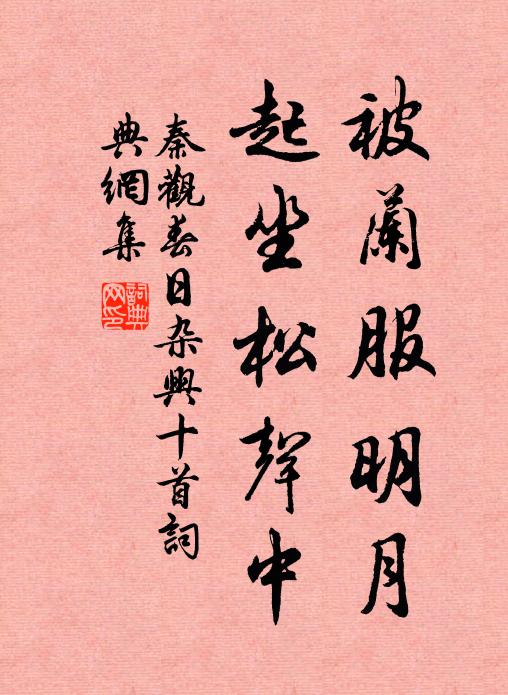 被蘭服明月
起坐松聲中
秦觀春日杂興十首詞
典網集
詞典
网印